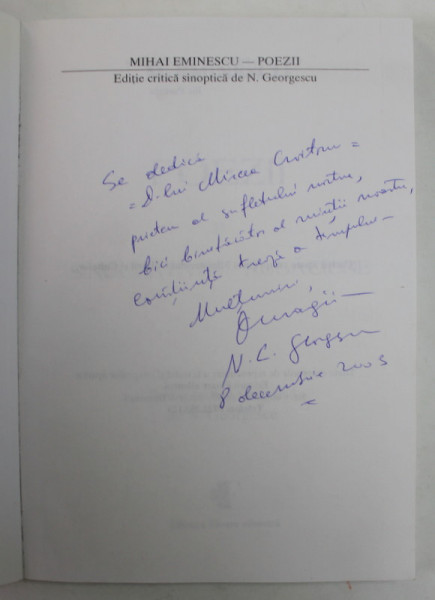 MIHAI EMINESCU — POEZII
Ediție critică sinoptică de N. Georgescu
Se dedică
D-lui Mircea Croitoru =
prieten al sufletului nostru,
bici binefăcător al minții noastre,
conștiință trează a timpului —
Mulțumiri,
Omagii —
N. C. Georgescu
8 decembrie 2005